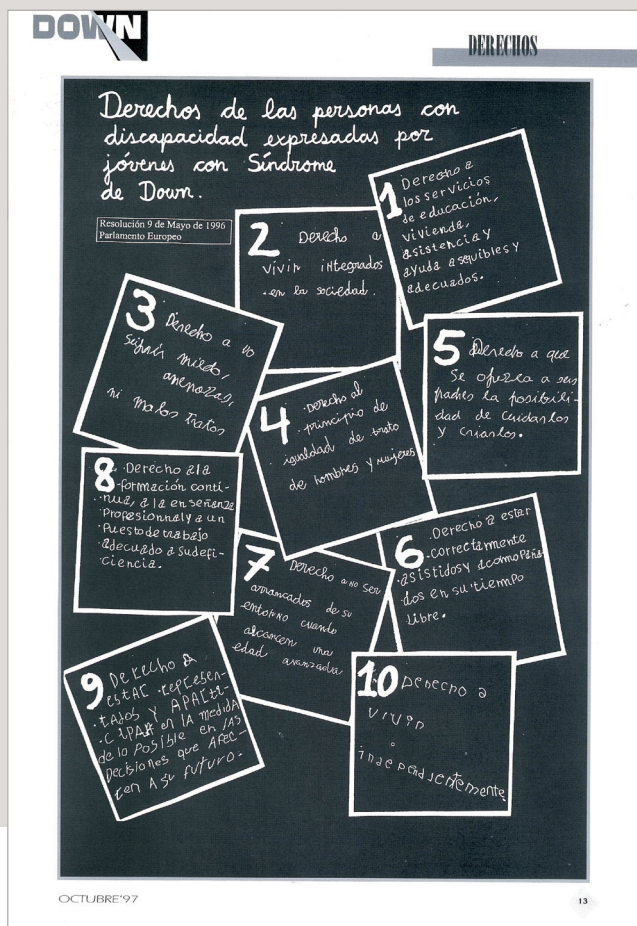 DOWN
DERECHOS
Derechos de las personas con
discapacidad expresadas por
jóvenes con Síndrome
de Down.
Resolución 9 de Mayo de 1996
Parlamento Europeo
1 Derecho a
los servicios
de educación,
vivienda,
asistencia y
ayuda asequibles y
adecuados.
2 Derecho a
vivir integrados
en la sociedad.
3 Derecho a no
sufrir miedo,
amenazas,
ni malos tratos
4 Derecho al
principio de
igualdad de trato
de hombres y mujeres
5 Derecho a que
se ofrezca a sus
padres la posibili-
dad de cuidarlos
y criarlos.
6 Derecho a estar
correctamente
asistidos y acompaña-
dos en su tiempo
libre.
7 Derecho a no ser
arrancados de su
entorno cuando
alcancen una
edad avanzada
8 Derecho a la
formación conti-
nua, a la enseñanza
Profesionnal y a un
Puesto de trabajo
adecuado a su defi-
ciencia.
9 Derecho a
estar represen-
tados y APARti-
CIPAR en la medida
de lo posible en las
Decisiones que afec-
ten a su futuro.
10 Derecho a
vivir
independientemente.
OCTUBRE'97
13